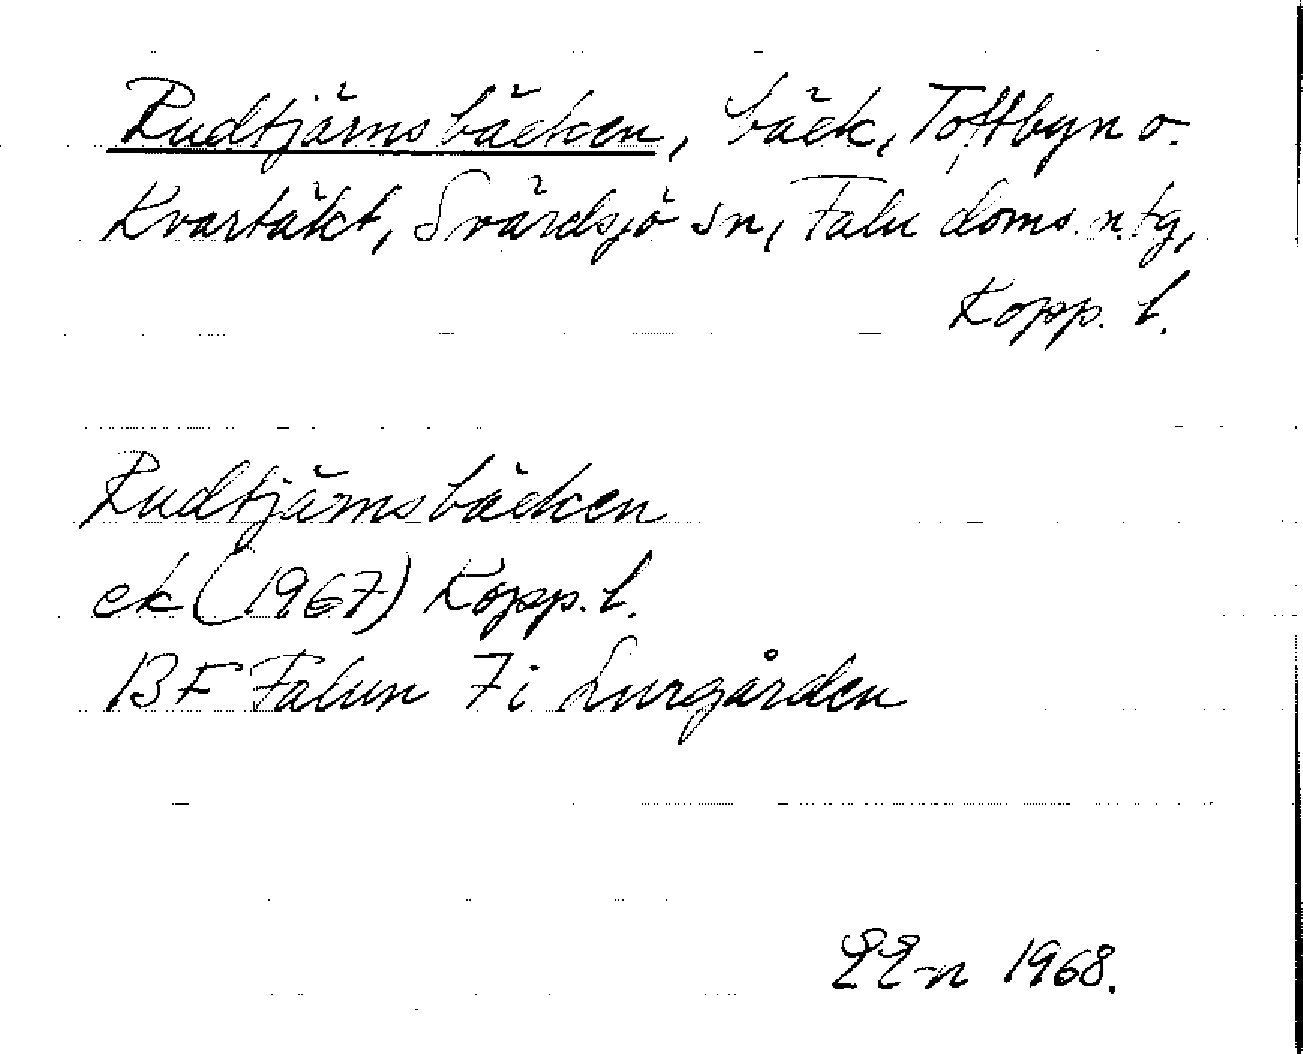 Rudtjärnsbäcken, bäck, Toftbyn o.
Kvartäkt, Svärdsjö sn, Falu doms. n. tg,
Kopp. l.
Rudtjärnsbäcken
ek (1967) Kopp. l.
BF Falun 7i Lurgården
1968.